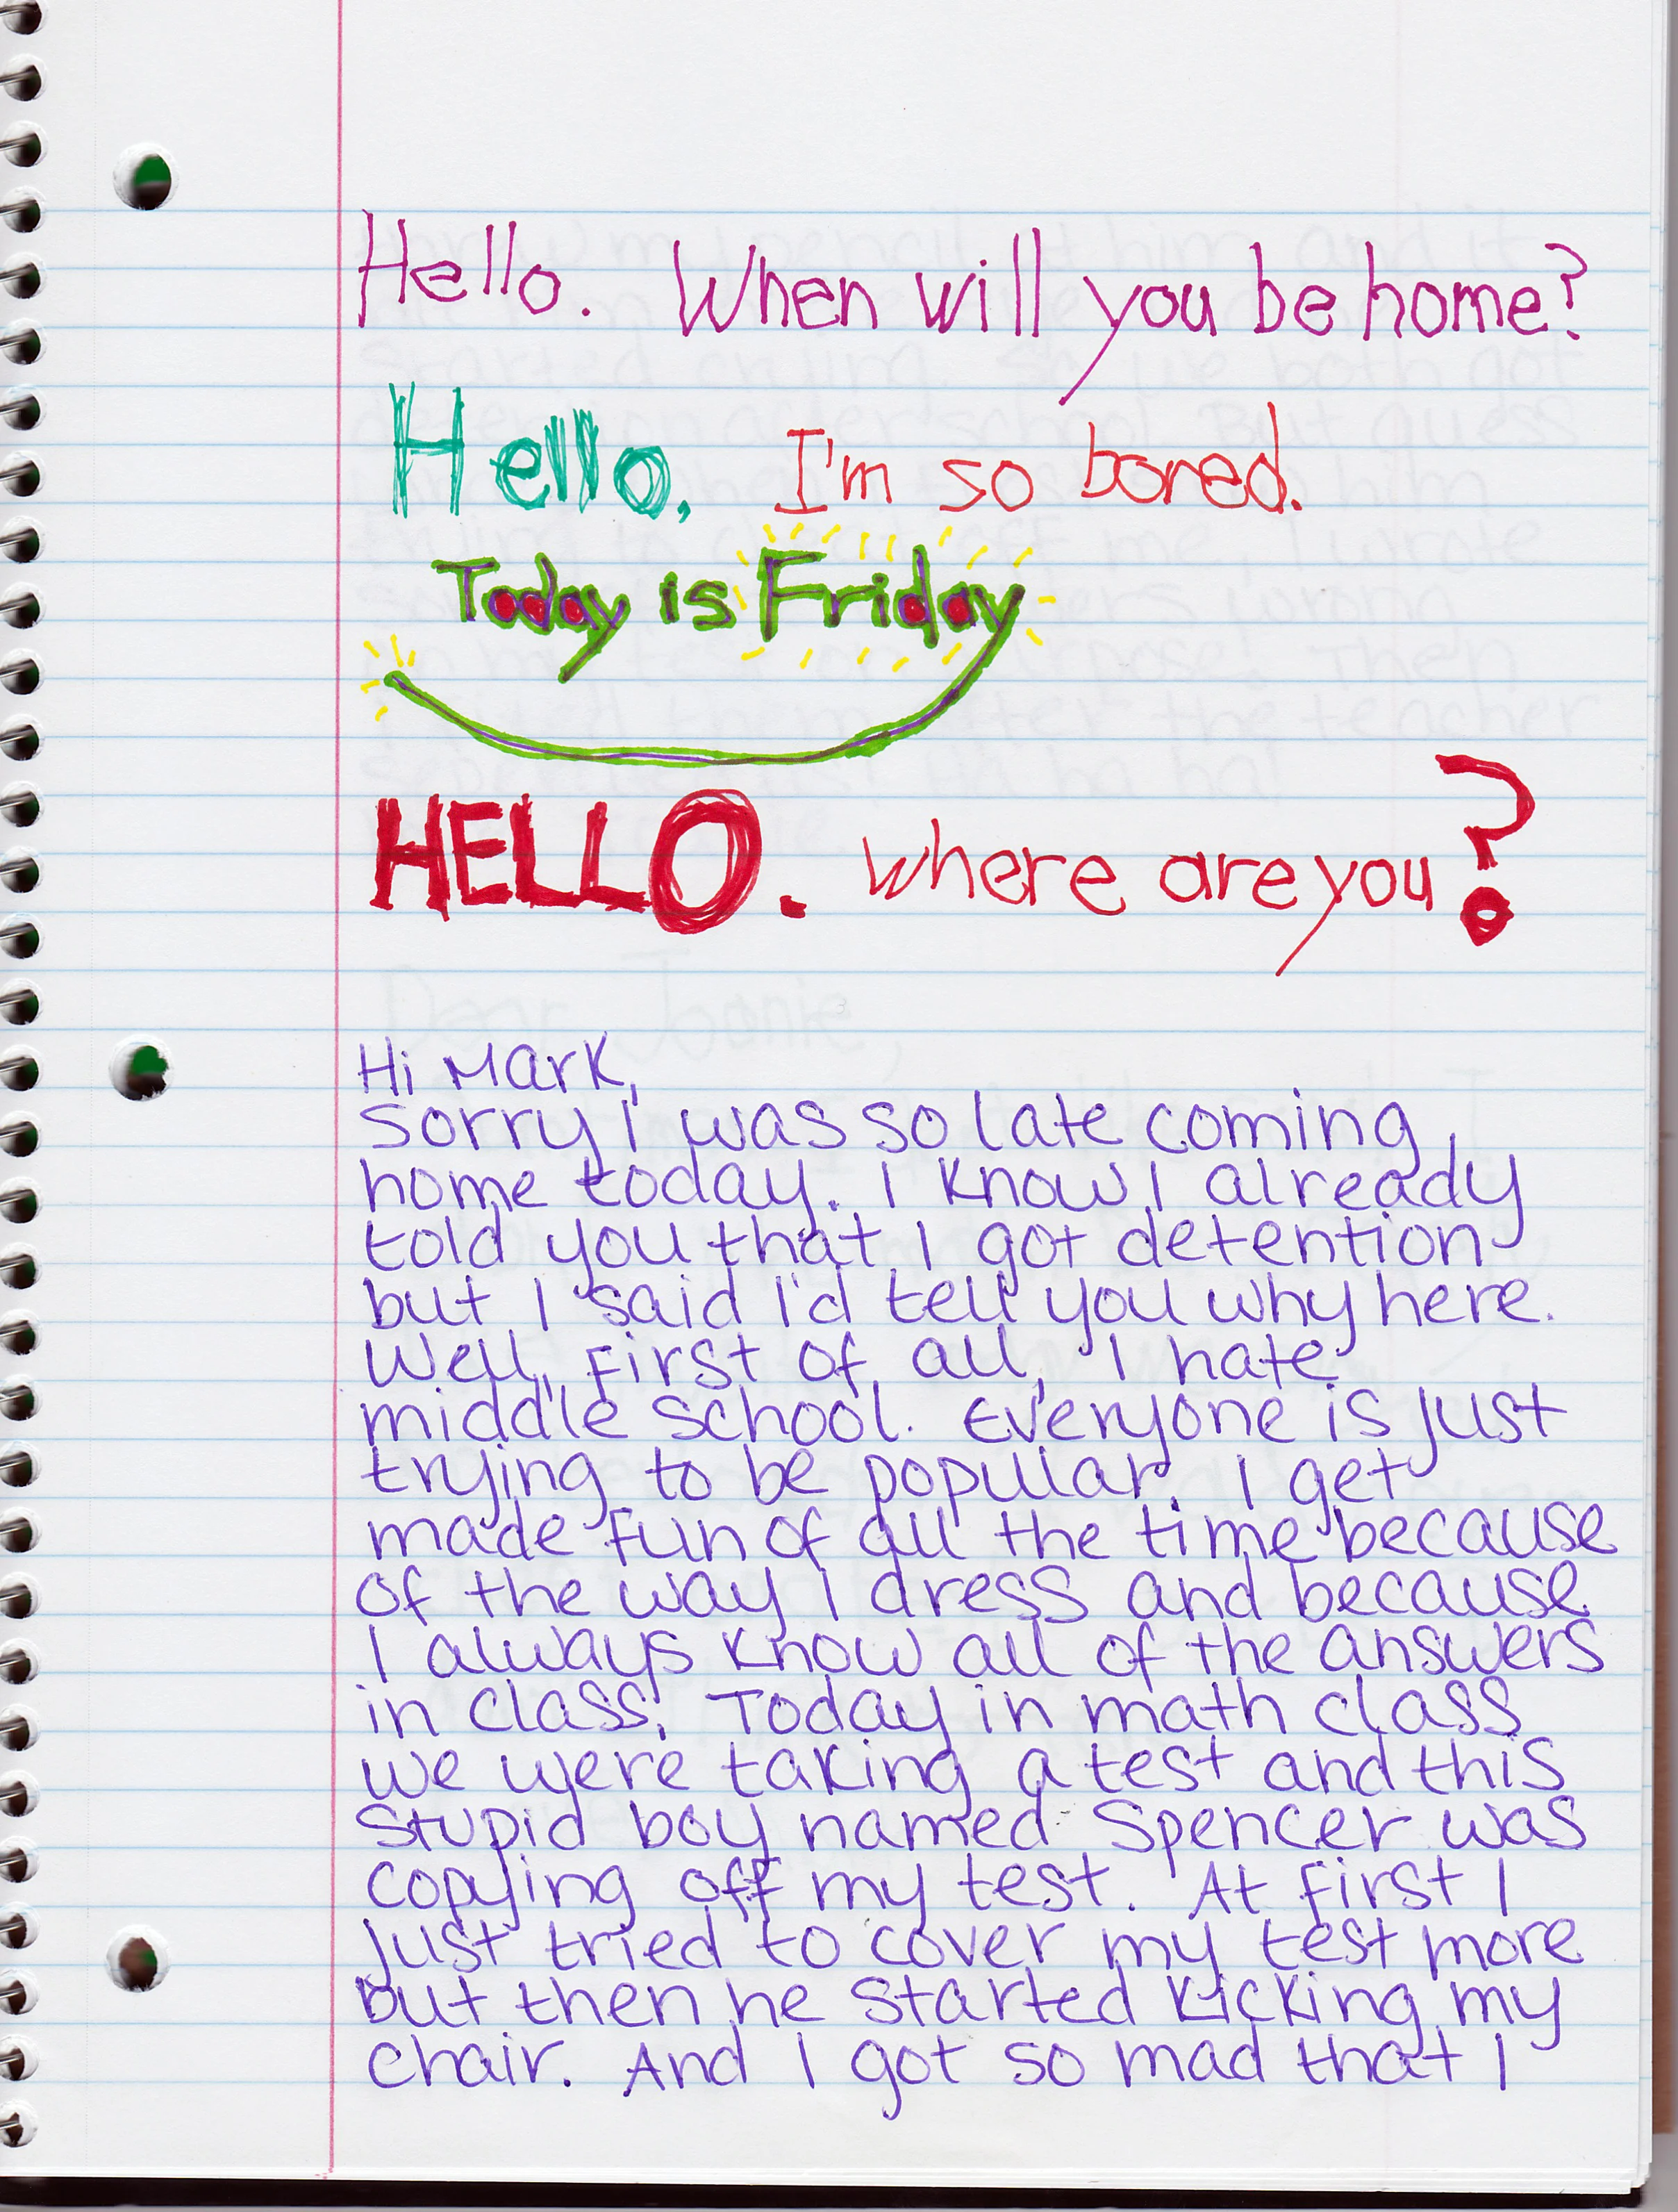 Hello. When will you be home?
Hello, I'm so bored.
Today is Friday
HELLO. where are you?
Hi Mark,
Sorry I was so late coming
home today. I know I already
told you that I got detention
but I said I'd tell you why here.
Well, first of all, I hate
middle school. Everyone is just
trying to be popular. I get
made fun of all the time because
of the way I dress and because
I always know all of the answers
in class. Today in math class
we were taking a test and this
stupid boy named Spencer was
copying off my test. At first I
just tried to cover my test more
but then he started kicking my
chair. And I got so mad that I